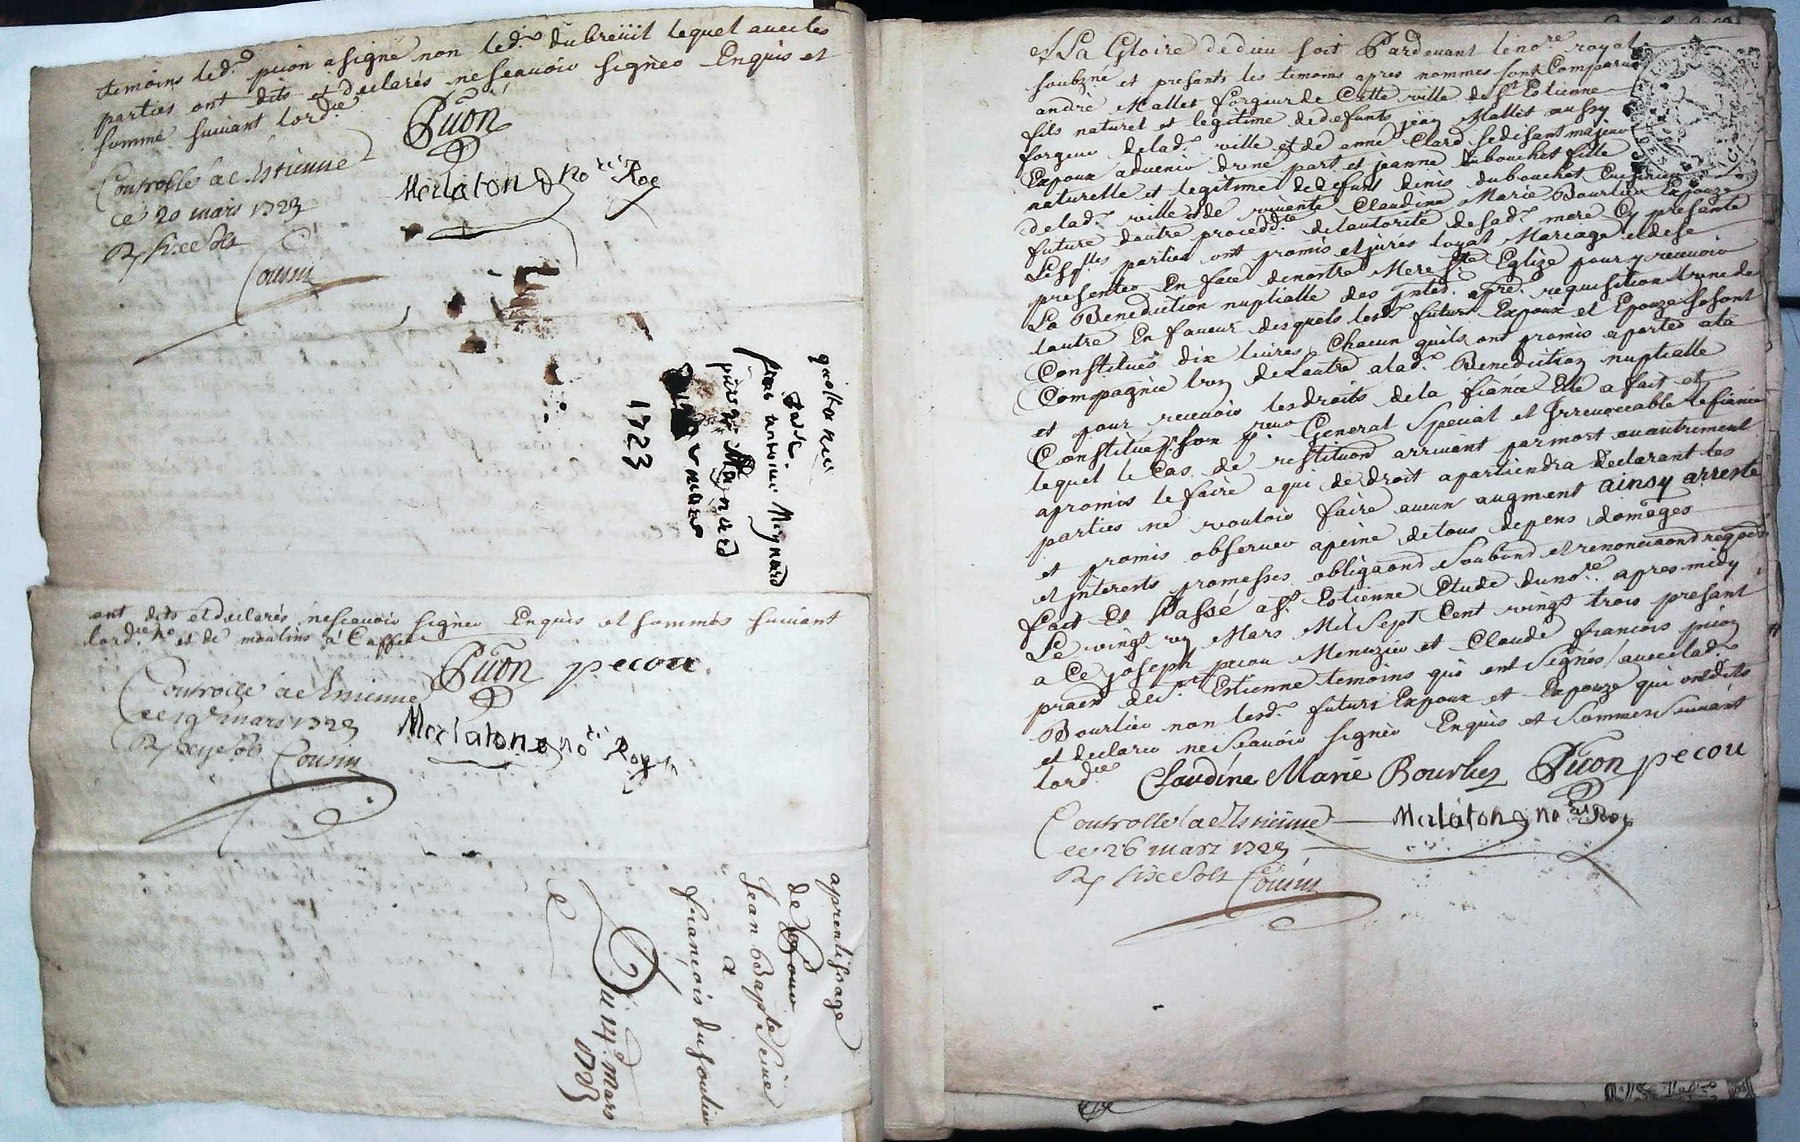 temoins led.᷎ pion a signé non led.᷎ dubreüil lequel avec les
parties ont dits et declarés ne scavoir signèr Enquis et
sommé suivant lord.ce
Puon
Controllé a St Estienne
Marlaton no.re Roy
ce 20 mars 1723
R. six sols
Cousin
quittance
par antoine Mignard
Mignard
1723
ont dits et declarés ne scavoir signer Enquis et sommés suivant
lord.ce et de moulins a Caffé
Puon pecou
Controllé a St Estienne
ce 19e mars 1723
Marlaton no.re Roy
Cousin
aprentissage
de
Jean Baptiste
a
françois
Du 14e Mars
1723
A La Gloire de dieu soit Pardevant le no.re royal
soubz.né et presants les temoins apres nommés sont Comparus
andré Mallet forgeur de Cette ville de St Estienne
fils naturel et legitime de defunts jean Mallet aussy
forgeur de lad. ville et de anne Clard se disant majeur
Expoux advenir d'une part et jeanne dubouchet fille
naturelle et legitime de defunt denis dubouchet
de lad. ville et de vivante Claudine Marie Bourlier Expouze
future d'autre proced.te de l'autorité de sad. mere Cy presante
Lesq.lles parties ont promis et jurés loyal Mariage et de se
presenter En face de nontre Mere Ste Eglize pour y recevoir
La Benediction nuptialle requisition l'une de
lautre En faveur desquels lesd. futurs Expoux et Epouze se sont
Constitués dix livres Chacun quils ont promis aporter a la
Compagnie lun de lautre a lad. Benediction nuptialle
et pour recevoir les droits de la fiancé Elle a fait et
Constitué p. son p. General Special et Irrevocable le fiancé
lequel le Cas de restituon arrivant par mort ou autrement
a promis le faire a qui de droit apartiendra declarant les
parties ne vouloir faire aucun augment ainsy arresté
et promis observer a peine de tous depens domages
et interests promesses obligaond soubond et renonciaond
fait Et Passé a St Estienne Etude du no.re apres midy
Le vingt Mars Mil Sept Cent vingt trois presant
a Ce joseph pecou Menuzier et Claude françois puon
prat.n de St Estienne temoins qui ont Signés avec lad.
Bourlier non lesd. futurs Expoux et Expouze qui ont dits
et declarer ne scavoir signér Enquis et Sommer Suivant
lord.ce
Claudine Marie Bourlier Puon pecou
Controllé a St Estienne
Marlaton no.re Roy
ce 26 mars 1723
R. six sols
Cousin